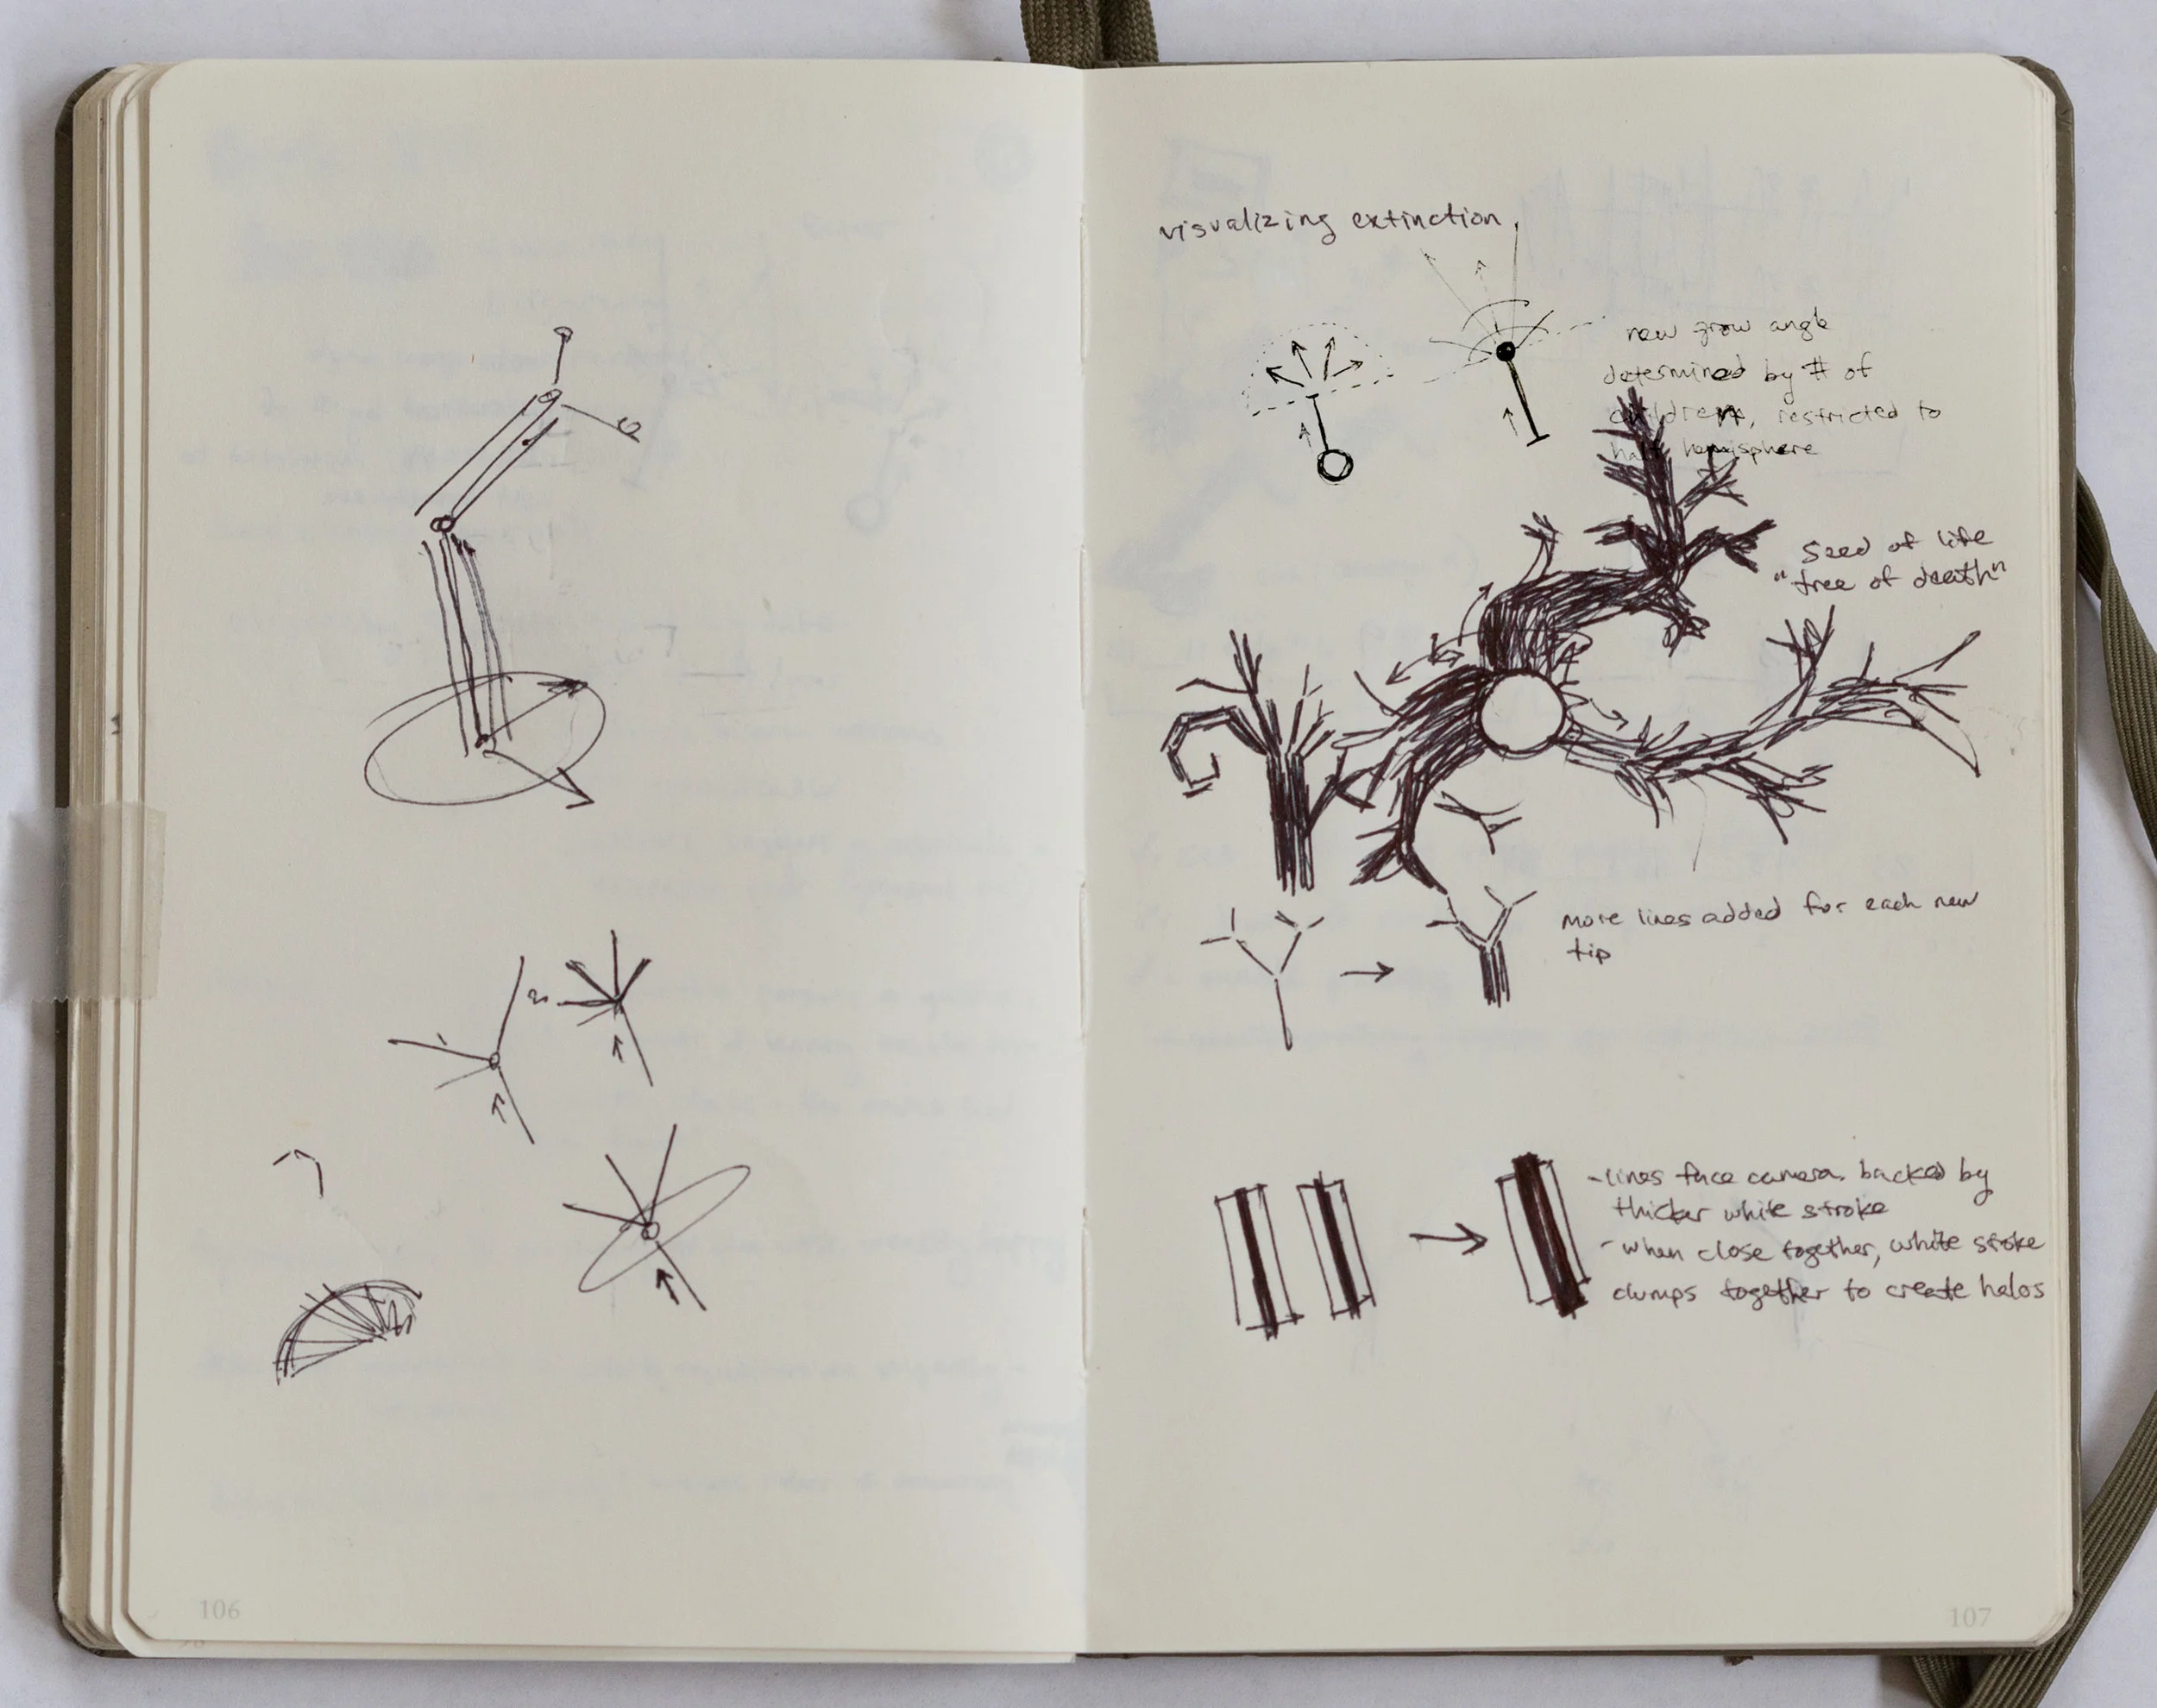 visualizing extinction.
new grow angle
determined by # of
children, restricted to
half hemisphere
Seed of life
"tree of death"
more lines added for each new
tip
- lines face camera. backed by
thicker white stroke
- when close together, white stroke
clumps together to create halos
106
107